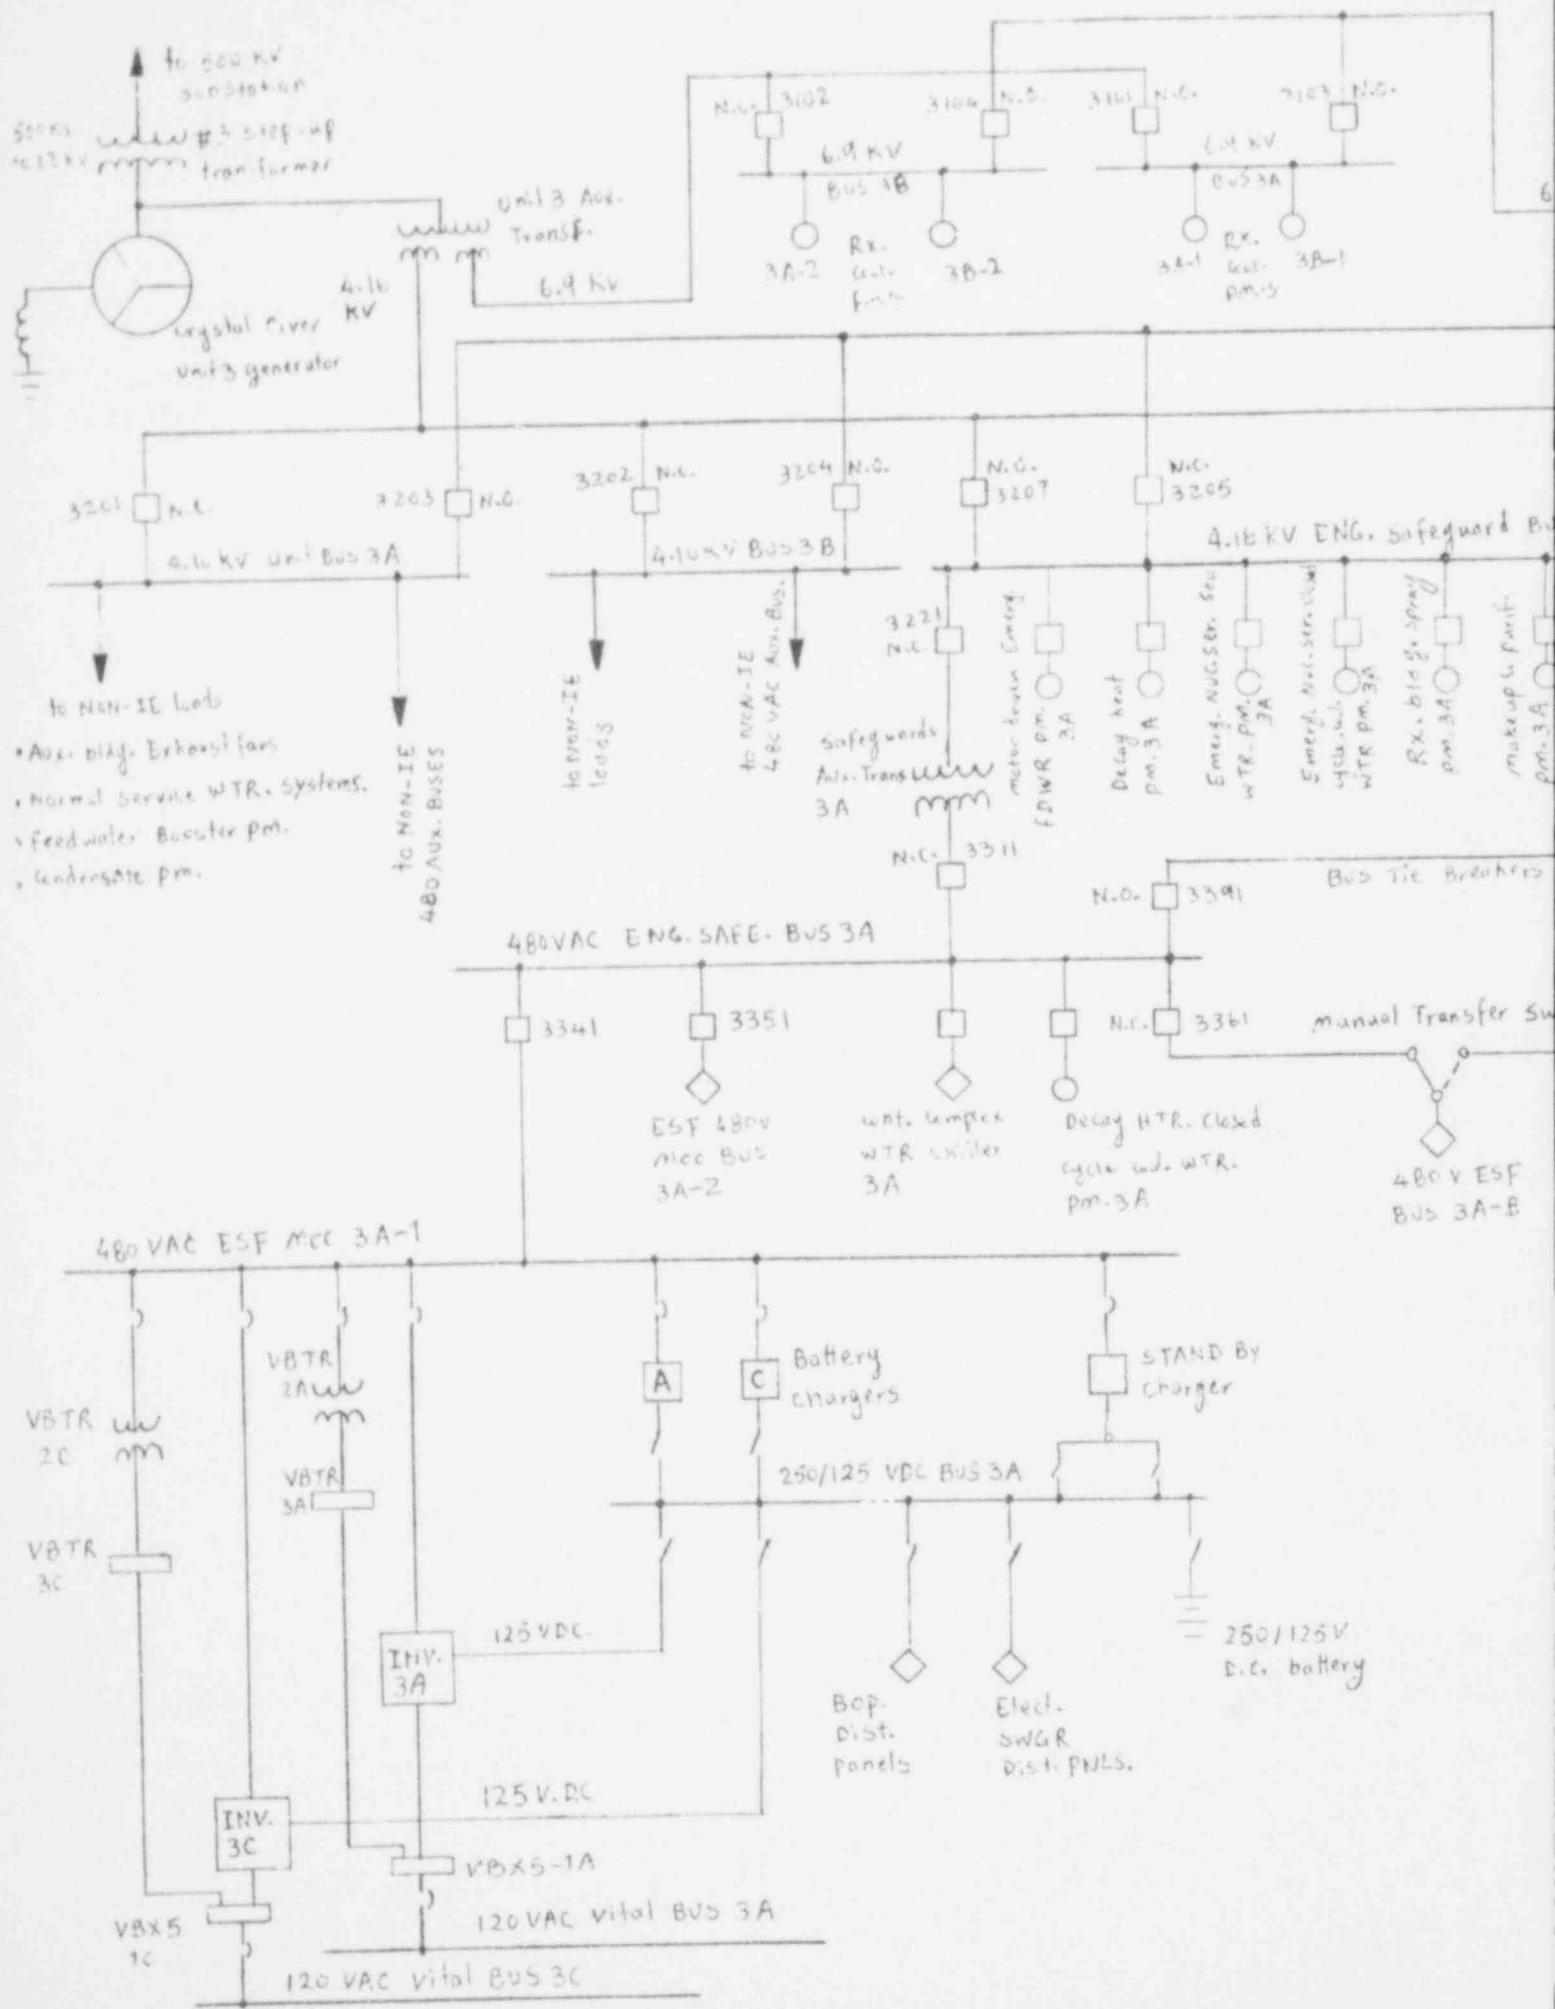 to 500 KV
substation
#3 step-up
transformer
Unit 3 Aux.
Transf.
4.16
KV
6.9 KV
Crystal River
unit 3 generator
N.C. 3102
3104 N.O.
N.C.
3103 N.O.
6.9 KV
BUS 3B
6.9 KV
BUS 3A
3A-2
Rx.
3B-2
Rx.
3B-1
pm.s
6
3201 N.C.
3203 N.O.
3202 N.C.
3204 N.O.
N.O.
3207
N.C.
3205
4.16 KV Unit BUS 3A
4.16 KV BUS 3B
4.16 KV ENG. Safeguard Bu
to NON-IE loads
• Aux. bldg. Exhaust fans
• Normal service WTR. systems.
• Feedwater Booster pm.
• Condensate pm.
to NON-IE
480 AUX. BUSES
to NON-IE
loads
to NON-IE
480 VAC Aux. Bus.
3221
N.C.
Safeguards
Aux. Trans
3A
motor driven Emerg.
FDWR pm.
3A
Decay heat
pm. 3A
Emerg. NUC. Ser. Sea
WTR. pm.
3A
Emerg. Nuc. ser. closed
WTR pm. 3A
Rx. bldg. spray
pm. 3A
makeup & purif.
pm. 3A
N.C. 3311
N.O. 3391
Bus Tie Breakers
480VAC ENG. SAFE. BUS 3A
3341
3351
N.C. 3361
manual Transfer Sw
ESF 480V
MCC BUS
3A-2
cont. complex
WTR chiller
3A
Decay HTR. Closed
cycle cool. WTR.
pm. 3A
480 V ESF
BUS 3A-B
480 VAC ESF MCC 3A-1
VBTR
2A
A
C
Battery
chargers
STAND BY
charger
VBTR
2C
VBTR
3A
250/125 VDC BUS 3A
VBTR
3C
INV.
3A
125 VDC.
250/125V
D.C. battery
Bop.
Dist.
panels
Elect.
SWGR
Dist. PNLS.
125 V. DC
INV.
3C
VBX5-1A
VBX5
1C
120 VAC Vital BUS 3A
120 VAC Vital BUS 3C